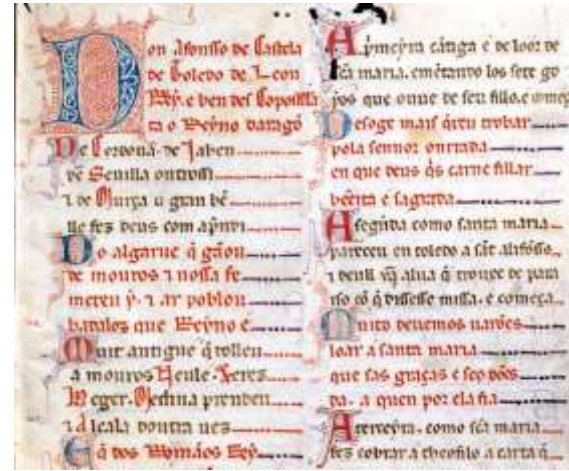 Don Affonsso de Castela
de Toledo de Leon
Rey. e ben des Conpostela
ta o Reyno daragō
De Cordoua. de Jahen
de Seuilla outrossi
⁊ de Murça u gran bē
lle fez deus com aprendi
Do algarue q̄ gāou
de mouros ⁊ nossa fe
meteu y. ⁊ ar poblou
badallos que Reyno é
Muit antigue q̄ tolleu
a mouros Neule. Xeres
Beger. Medina prendeu
⁊ Alcala doutra ues
E q̄ dos Romāos Rey
A pmeyra cātiga é de loor de
sc̄a maria. emētando los sete go
jos que ouue de seu fillo. e começ
Des oge mais q̄reu trobar
pola sennor onrrada
en que deus q̄s carne fillar
bēeita e sagrada
A segūda como santa maria
pareceu en toledo a sāt alifosso
⁊ deull alua q̄ trouxe de para
yso cō q̄ dissesse missa. e começa
Muito deuemos uarōes
loar a santa maria
que sas graças e seos dōes
da. a quen por ela fia
A terceyra. como sc̄a maria
fez cobrar a theofilo a carta q̄